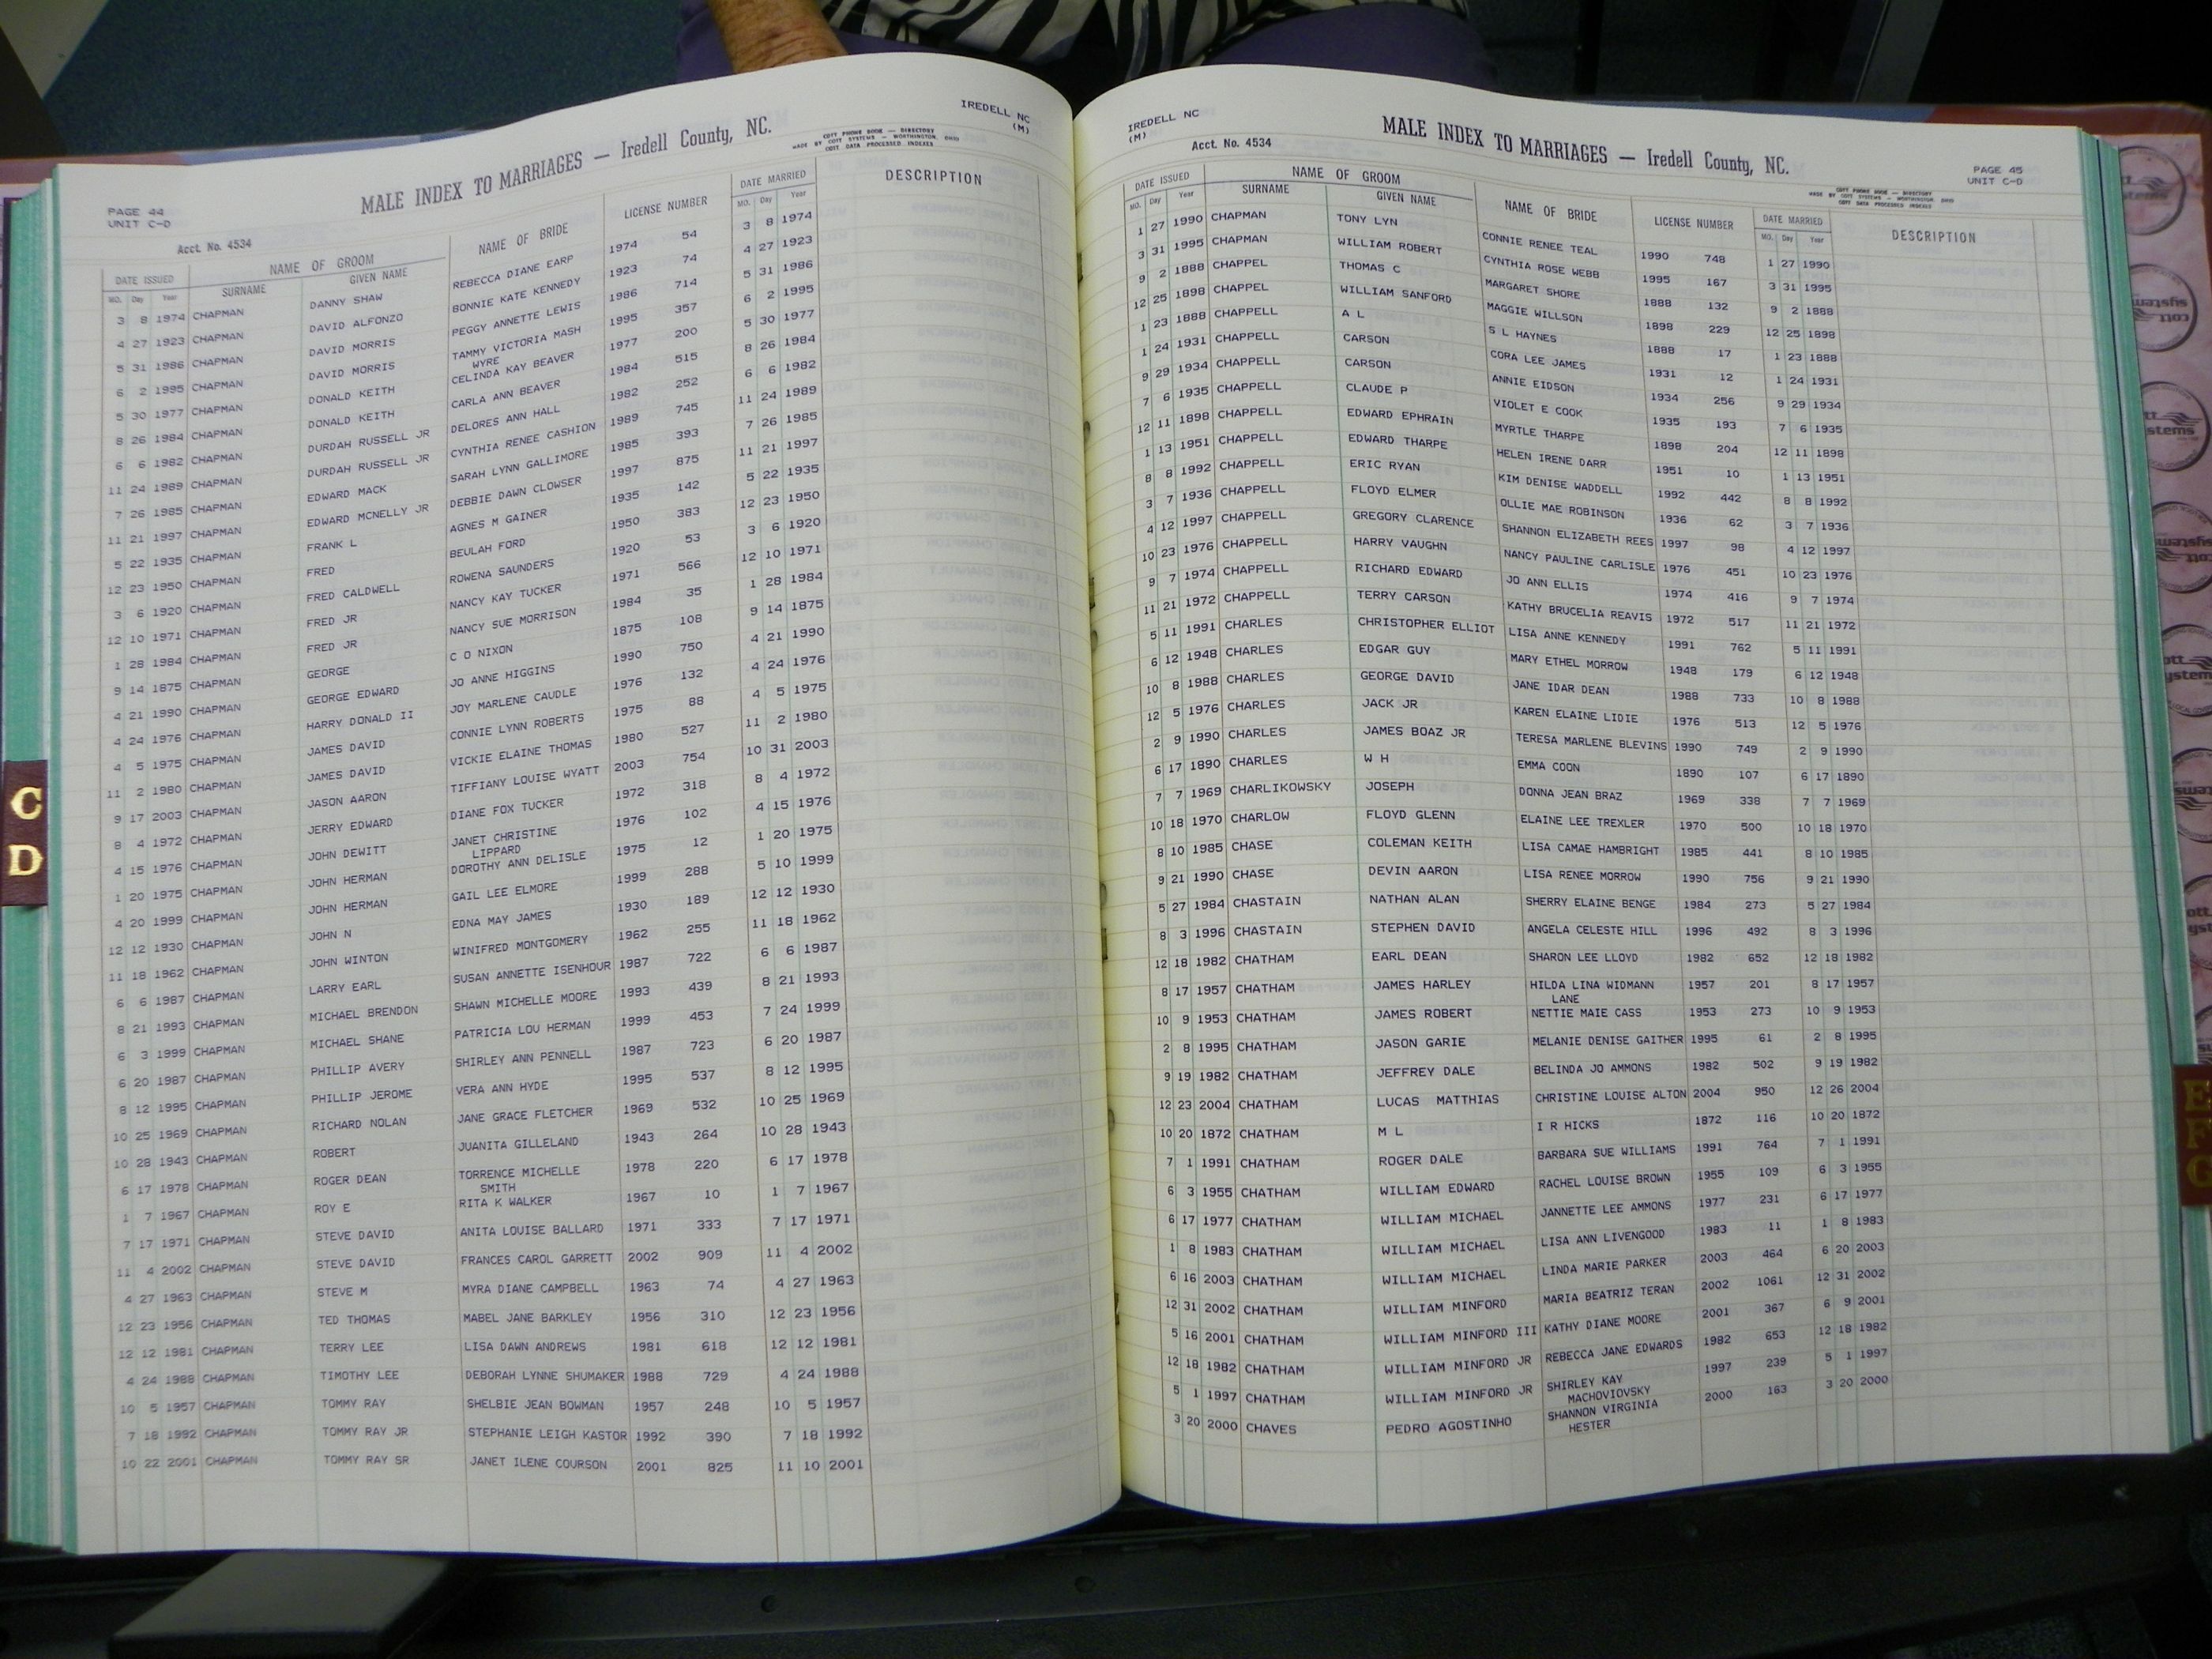 PAGE 44
UNIT C-D
Acct. No. 4534
MALE INDEX TO MARRIAGES — Iredell County, NC.
COTT PHONE BOOK — DIRECTORY
MADE BY COTT SYSTEMS — WORTHINGTON, OHIO
COTT DATA PROCESSED INDEXES
IREDELL NC
(M)
DATE ISSUED NAME OF GROOM NAME OF BRIDE LICENSE NUMBER DATE MARRIED DESCRIPTION
MO. Day Year SURNAME GIVEN NAME MO. Day Year
3 8 1974 CHAPMAN DANNY SHAW REBECCA DIANE EARP 1974 54 3 8 1974
4 27 1923 CHAPMAN DAVID ALFONZO BONNIE KATE KENNEDY 1923 74 4 27 1923
5 31 1986 CHAPMAN DAVID MORRIS PEGGY ANNETTE LEWIS 1986 714 5 31 1986
6 2 1995 CHAPMAN DAVID MORRIS TAMMY VICTORIA MASH 1995 357 6 2 1995
WYRE
5 30 1977 CHAPMAN DONALD KEITH CELINDA KAY BEAVER 1977 200 5 30 1977
8 26 1984 CHAPMAN DONALD KEITH CARLA ANN BEAVER 1984 515 8 26 1984
6 6 1982 CHAPMAN DURDAH RUSSELL JR DELORES ANN HALL 1982 252 6 6 1982
11 24 1989 CHAPMAN DURDAH RUSSELL JR CYNTHIA RENEE CASHION 1989 745 11 24 1989
7 26 1985 CHAPMAN EDWARD MACK SARAH LYNN GALLIMORE 1985 393 7 26 1985
11 21 1997 CHAPMAN EDWARD MCNELLY JR DEBBIE DAWN CLOWSER 1997 875 11 21 1997
5 22 1935 CHAPMAN FRANK L AGNES M GAINER 1935 142 5 22 1935
12 23 1950 CHAPMAN FRED BEULAH FORD 1950 383 12 23 1950
3 6 1920 CHAPMAN FRED CALDWELL ROWENA SAUNDERS 1920 53 3 6 1920
12 10 1971 CHAPMAN FRED JR NANCY KAY TUCKER 1971 566 12 10 1971
1 28 1984 CHAPMAN FRED JR NANCY SUE MORRISON 1984 35 1 28 1984
9 14 1875 CHAPMAN GEORGE C O NIXON 1875 108 9 14 1875
4 21 1990 CHAPMAN GEORGE EDWARD JO ANNE HIGGINS 1990 750 4 21 1990
4 24 1976 CHAPMAN HARRY DONALD II JOY MARLENE CAUDLE 1976 132 4 24 1976
4 5 1975 CHAPMAN JAMES DAVID CONNIE LYNN ROBERTS 1975 88 4 5 1975
11 2 1980 CHAPMAN JAMES DAVID VICKIE ELAINE THOMAS 1980 527 11 2 1980
9 17 2003 CHAPMAN JASON AARON TIFFIANY LOUISE WYATT 2003 754 10 31 2003
8 4 1972 CHAPMAN JERRY EDWARD DIANE FOX TUCKER 1972 318 8 4 1972
4 15 1976 CHAPMAN JOHN DEWITT JANET CHRISTINE 1976 102 4 15 1976
LIPPARD
1 20 1975 CHAPMAN JOHN HERMAN DOROTHY ANN DELISLE 1975 12 1 20 1975
4 20 1999 CHAPMAN JOHN HERMAN GAIL LEE ELMORE 1999 288 5 10 1999
12 12 1930 CHAPMAN JOHN N EDNA MAY JAMES 1930 189 12 12 1930
11 18 1962 CHAPMAN JOHN WINTON WINIFRED MONTGOMERY 1962 255 11 18 1962
6 6 1987 CHAPMAN LARRY EARL SUSAN ANNETTE ISENHOUR 1987 722 6 6 1987
8 21 1993 CHAPMAN MICHAEL BRENDON SHAWN MICHELLE MOORE 1993 439 8 21 1993
6 3 1999 CHAPMAN MICHAEL SHANE PATRICIA LOU HERMAN 1999 453 7 24 1999
6 20 1987 CHAPMAN PHILLIP AVERY SHIRLEY ANN PENNELL 1987 723 6 20 1987
8 12 1995 CHAPMAN PHILLIP JEROME VERA ANN HYDE 1995 537 8 12 1995
10 25 1969 CHAPMAN RICHARD NOLAN JANE GRACE FLETCHER 1969 532 10 25 1969
10 28 1943 CHAPMAN ROBERT JUANITA GILLELAND 1943 264 10 28 1943
6 17 1978 CHAPMAN ROGER DEAN TORRENCE MICHELLE 1978 220 6 17 1978
SMITH
1 7 1967 CHAPMAN ROY E RITA K WALKER 1967 10 1 7 1967
7 17 1971 CHAPMAN STEVE DAVID ANITA LOUISE BALLARD 1971 333 7 17 1971
11 4 2002 CHAPMAN STEVE DAVID FRANCES CAROL GARRETT 2002 909 11 4 2002
4 27 1963 CHAPMAN STEVE M MYRA DIANE CAMPBELL 1963 74 4 27 1963
12 23 1956 CHAPMAN TED THOMAS MABEL JANE BARKLEY 1956 310 12 23 1956
12 12 1981 CHAPMAN TERRY LEE LISA DAWN ANDREWS 1981 618 12 12 1981
4 24 1988 CHAPMAN TIMOTHY LEE DEBORAH LYNNE SHUMAKER 1988 729 4 24 1988
10 5 1957 CHAPMAN TOMMY RAY SHELBIE JEAN BOWMAN 1957 248 10 5 1957
7 18 1992 CHAPMAN TOMMY RAY JR STEPHANIE LEIGH KASTOR 1992 390 7 18 1992
10 22 2001 CHAPMAN TOMMY RAY SR JANET ILENE COURSON 2001 825 11 10 2001
C
D
IREDELL NC
(M)
Acct. No. 4534
MALE INDEX TO MARRIAGES — Iredell County, NC.
PAGE 45
UNIT C-D
COTT PHONE BOOK — DIRECTORY
MADE BY COTT SYSTEMS — WORTHINGTON, OHIO
COTT DATA PROCESSED INDEXES
DATE ISSUED NAME OF GROOM NAME OF BRIDE LICENSE NUMBER DATE MARRIED DESCRIPTION
MO. Day Year SURNAME GIVEN NAME MO. Day Year
1 27 1990 CHAPMAN TONY LYN CONNIE RENEE TEAL 1990 748 1 27 1990
3 31 1995 CHAPMAN WILLIAM ROBERT CYNTHIA ROSE WEBB 1995 167 3 31 1995
9 2 1888 CHAPPEL THOMAS C MARGARET SHORE 1888 132 9 2 1888
12 25 1898 CHAPPEL WILLIAM SANFORD MAGGIE WILLSON 1898 229 12 25 1898
1 23 1888 CHAPPELL A L S L HAYNES 1888 17 1 23 1888
1 24 1931 CHAPPELL CARSON CORA LEE JAMES 1931 12 1 24 1931
9 29 1934 CHAPPELL CARSON ANNIE EIDSON 1934 256 9 29 1934
7 6 1935 CHAPPELL CLAUDE P VIOLET E COOK 1935 193 7 6 1935
12 11 1898 CHAPPELL EDWARD EPHRAIN MYRTLE THARPE 1898 204 12 11 1898
1 13 1951 CHAPPELL EDWARD THARPE HELEN IRENE DARR 1951 10 1 13 1951
8 8 1992 CHAPPELL ERIC RYAN KIM DENISE WADDELL 1992 442 8 8 1992
3 7 1936 CHAPPELL FLOYD ELMER OLLIE MAE ROBINSON 1936 62 3 7 1936
4 12 1997 CHAPPELL GREGORY CLARENCE SHANNON ELIZABETH REES 1997 98 4 12 1997
10 23 1976 CHAPPELL HARRY VAUGHN NANCY PAULINE CARLISLE 1976 451 10 23 1976
9 7 1974 CHAPPELL RICHARD EDWARD JO ANN ELLIS 1974 416 9 7 1974
11 21 1972 CHAPPELL TERRY CARSON KATHY BRUCELIA REAVIS 1972 517 11 21 1972
5 11 1991 CHARLES CHRISTOPHER ELLIOT LISA ANNE KENNEDY 1991 762 5 11 1991
6 12 1948 CHARLES EDGAR GUY MARY ETHEL MORROW 1948 179 6 12 1948
10 8 1988 CHARLES GEORGE DAVID JANE IDAR DEAN 1988 733 10 8 1988
12 5 1976 CHARLES JACK JR KAREN ELAINE LIDIE 1976 513 12 5 1976
2 9 1990 CHARLES JAMES BOAZ JR TERESA MARLENE BLEVINS 1990 749 2 9 1990
6 17 1890 CHARLES W H EMMA COON 1890 107 6 17 1890
7 7 1969 CHARLIKOWSKY JOSEPH DONNA JEAN BRAZ 1969 338 7 7 1969
10 18 1970 CHARLOW FLOYD GLENN ELAINE LEE TREXLER 1970 500 10 18 1970
8 10 1985 CHASE COLEMAN KEITH LISA CAMAE HAMBRIGHT 1985 441 8 10 1985
9 21 1990 CHASE DEVIN AARON LISA RENEE MORROW 1990 756 9 21 1990
5 27 1984 CHASTAIN NATHAN ALAN SHERRY ELAINE BENGE 1984 273 5 27 1984
8 3 1996 CHASTAIN STEPHEN DAVID ANGELA CELESTE HILL 1996 492 8 3 1996
12 18 1982 CHATHAM EARL DEAN SHARON LEE LLOYD 1982 652 12 18 1982
8 17 1957 CHATHAM JAMES HARLEY HILDA LINA WIDMANN 1957 201 8 17 1957
LANE
10 9 1953 CHATHAM JAMES ROBERT NETTIE MAIE CASS 1953 273 10 9 1953
2 8 1995 CHATHAM JASON GARIE MELANIE DENISE GAITHER 1995 61 2 8 1995
9 19 1982 CHATHAM JEFFREY DALE BELINDA JO AMMONS 1982 502 9 19 1982
12 23 2004 CHATHAM LUCAS MATTHIAS CHRISTINE LOUISE ALTON 2004 950 12 26 2004
10 20 1872 CHATHAM M L I R HICKS 1872 116 10 20 1872
7 1 1991 CHATHAM ROGER DALE BARBARA SUE WILLIAMS 1991 764 7 1 1991
6 3 1955 CHATHAM WILLIAM EDWARD RACHEL LOUISE BROWN 1955 109 6 3 1955
6 17 1977 CHATHAM WILLIAM MICHAEL JANNETTE LEE AMMONS 1977 231 6 17 1977
1 8 1983 CHATHAM WILLIAM MICHAEL LISA ANN LIVENGOOD 1983 11 1 8 1983
6 16 2003 CHATHAM WILLIAM MICHAEL LINDA MARIE PARKER 2003 464 6 20 2003
12 31 2002 CHATHAM WILLIAM MINFORD MARIA BEATRIZ TERAN 2002 1061 12 31 2002
5 16 2001 CHATHAM WILLIAM MINFORD III KATHY DIANE MOORE 2001 367 6 9 2001
12 18 1982 CHATHAM WILLIAM MINFORD JR REBECCA JANE EDWARDS 1982 653 12 18 1982
5 1 1997 CHATHAM WILLIAM MINFORD JR SHIRLEY KAY 1997 239 5 1 1997
MACHOVIOVSKY
3 20 2000 CHAVES PEDRO AGOSTINHO SHANNON VIRGINIA 2000 163 3 20 2000
HESTER
E
F
G